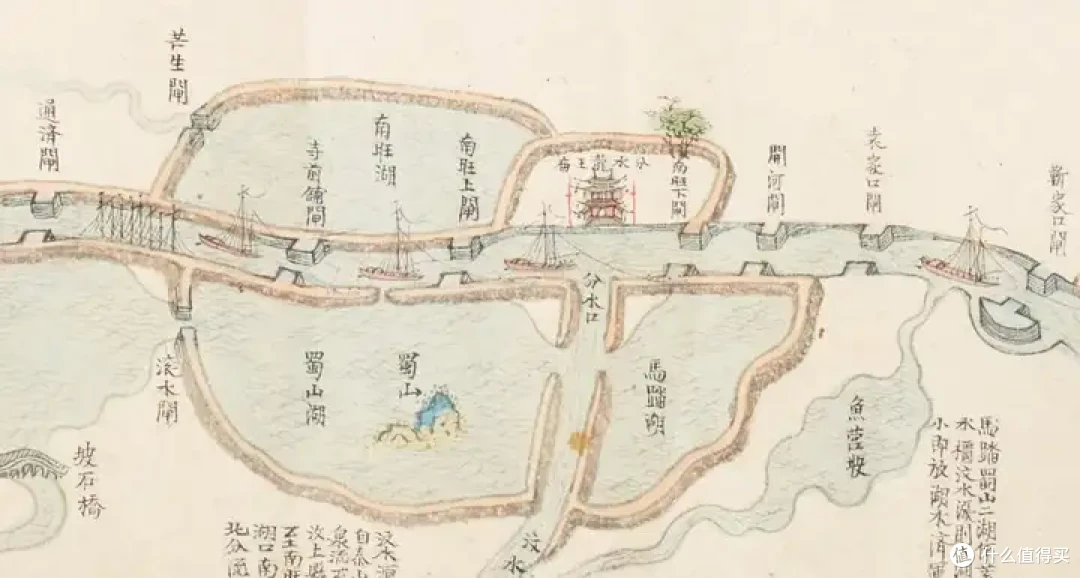 芒生閘
通濟閘
寺前鋪閘
南旺湖
南旺上閘
分水龍王庙
南旺下閘
開河閘
袁家口閘
靳家口閘
分水口
滚水閘
蜀山湖
蜀山
馬踏湖
魚營坡
坡石橋
馬踏蜀山二湖
水櫃汶水漲則
小即放湖水濟運
汶水源
自泰山
泉流
汶上縣
至南旺
湖口南
北分流
汶水
值 什么值得买